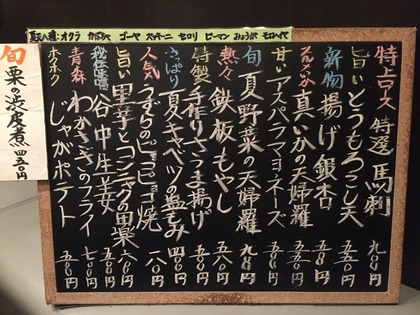 夏野菜:オクラ かぼちゃ ゴーヤ ズッキーニ セロリ ピーマン みょうが モロヘイヤ
特上ロース 特選 馬刺 九八〇円
旨い とうもろこし天 五五〇円
新物 揚げ銀杏 五八〇円
真いかの天婦羅 五五〇円
甘い アスパラマヨネーズ 五八〇円
旬 夏野菜の天婦羅 九八〇円
熱々 鉄板もやし 五八〇円
特製 手作りさつま揚げ 五八〇円
さっぱり 夏キャベツの塩もみ 四八〇円
人気 うずらのピヨピヨ焼 一八〇円
旨い 里芋とコンニャクの田楽 六八〇円
秘伝味噌 谷中生姜 五八〇円
青森 わかさぎのフライ 七〇〇円
ホクホク じゃがポテト 五〇〇円
旬 栗の渋皮煮 四五〇円